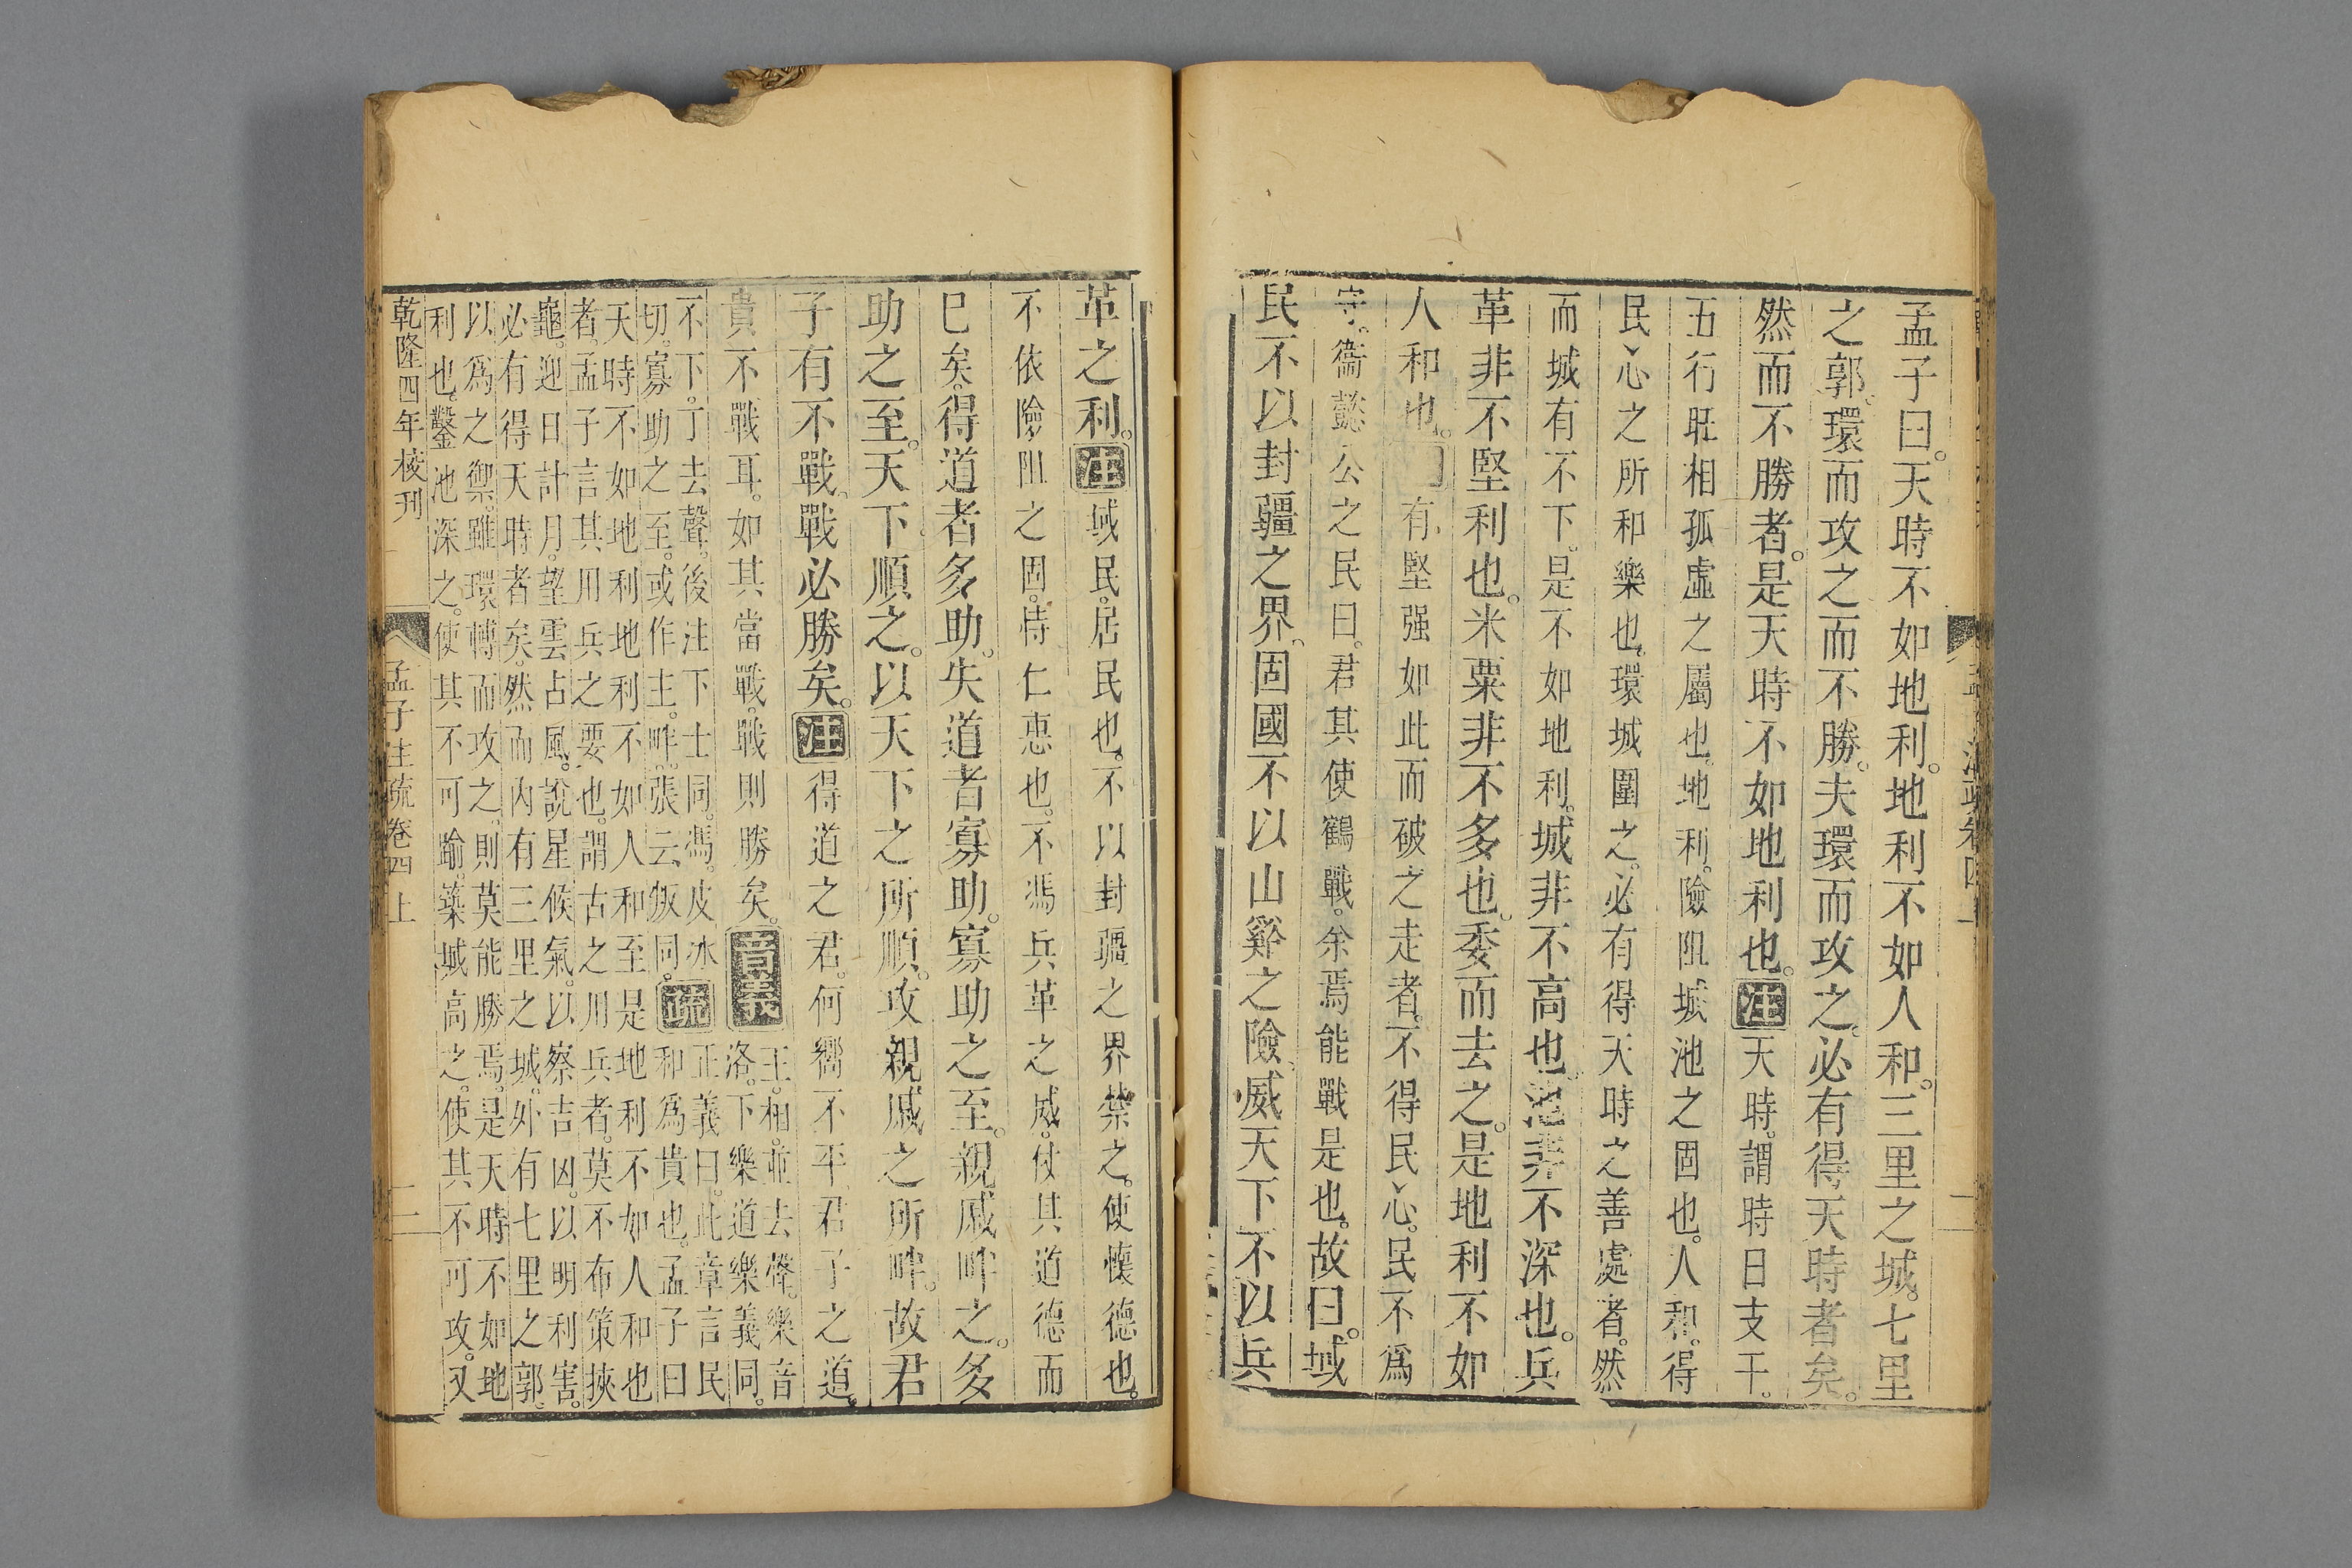 孟子曰。天時不如地利。地利不如人和。三里之城。七里
之郭。環而攻之而不勝。夫環而攻之。必有得天時者矣。
然而不勝者。是天時不如地利也。注天時。謂時日支干。
五行旺相孤虛之屬也。地利。險阻城池之固也。人和。得
民心之所和樂也。環城圍之。必有得天時之善處者。然
而城有不下。是不如地利。城非不高也。池非不深也。兵
革非不堅利也。米粟非不多也。委而去之。是地利不如
人和也。有堅强如此而破之走者。不得民心。民不爲
守。衞懿公之民曰。君其使鶴戰。余焉能戰是也。故曰。域
民不以封疆之界。固國不以山谿之險。威天下不以兵
革之利。注域民。居民也。不以封疆之界禁之。使懷德也。
不依險阻之固。恃仁惠也。不馮兵革之威。仗其道德而
巳矣。得道者多助。失道者寡助。寡助之至。親戚畔之。多
助之至。天下順之。以天下之所順。攻親戚之所畔。故君
子有不戰。戰必勝矣。注得道之君。何嚮不平。君子之道。
貴不戰耳。如其當戰。戰則勝矣。音義
王。相。並去聲。樂音
洛。下樂道樂義同。
不下。丁去聲。後注下士同。馮。皮冰
切。寡助之至。或作主。畔。張云叛同。疏
正義曰。此章言民
和爲貴也。孟子曰
天時不如地利地利不如人和至是地利不如人和也
者。孟子言其用兵之要也。謂古之用兵者。莫不布策挾
龜。迎日計月。望雲占風。說星候氣。以察吉凶。以明利害。
必有得天時者矣。然而內有三里之城。外有七里之郭。
以爲之禦。雖環轉而攻之。則莫能勝焉。是天時不如地
利也。鑿池深之。使其不可踰。築城高之。使其不可攻。又
乾隆四年校刊
孟子注疏卷四上
二